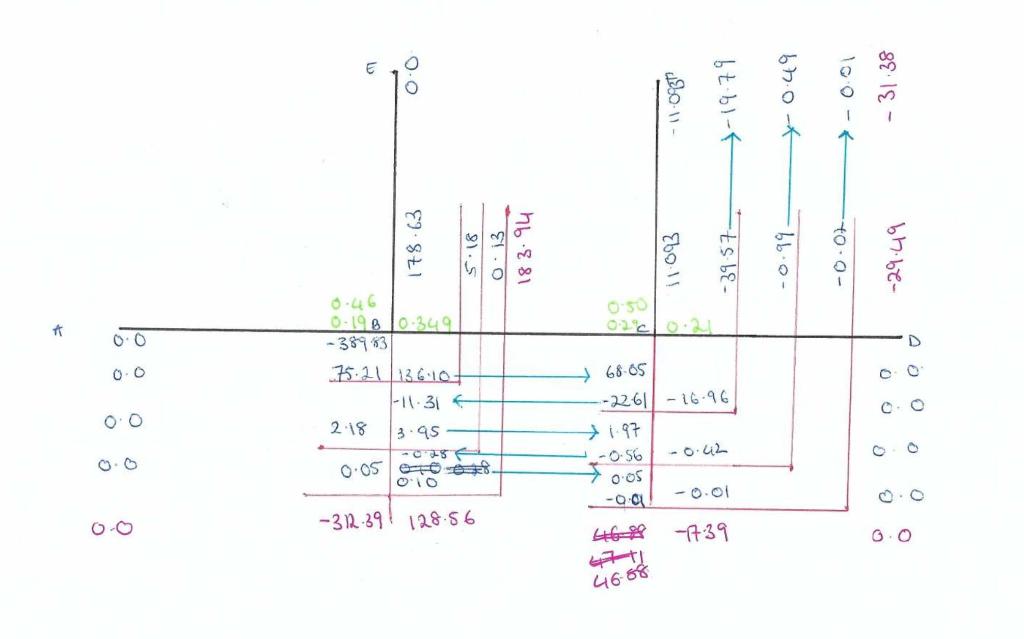 E
0.0
-11.093
-19.79
-0.49
-0.01
-31.38
178.63
5.18
0.13
183.94
11.093
-39.57
-0.99
-0.02
-29.49
0.46
0.50
0.19 B 0.349
0.29 C 0.21
A
D
0.0 -389.83
0.0 75.21 136.10 68.05 0.0
-11.31 -22.61 -16.96 0.0
0.0 2.18 3.95 1.97
-0.28 -0.56 -0.42 0.0
0.0 0.05 0.10 0.28 0.05
0.10 -0.01 -0.01 0.0
0.0 -312.39 128.56 46.88 -17.39 0.0
47.11
46.88